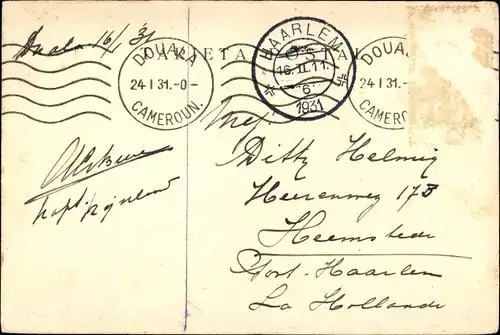 Duala 16/1 31
DOUALA
24 I 31.-0-
CAMEROUN.
HAARLEM
16.II.11.
6
1931
DOUALA
24 I 31.-0-
CAMEROUN.
Mej.
Ditty Helmig
Heerenweg 17B
Heemstede
Post. Haarlem
La Hollande
Kapt. Rijnland